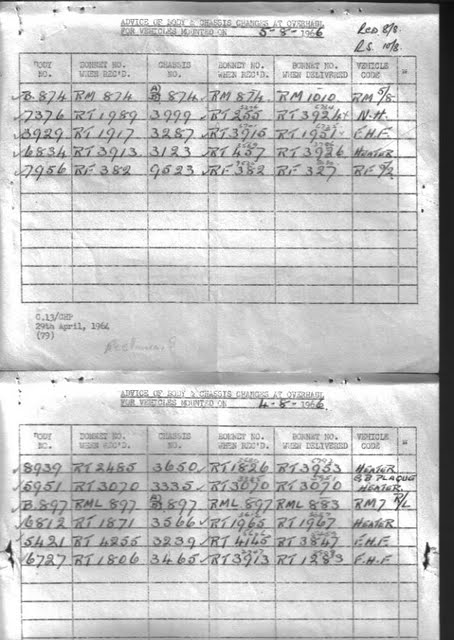 ADVICE OF BODY & CHASSIS CHANGES AT OVERHAUL
FOR VEHICLES MOUNTED ON 5-8-1966
RCD 8/8
R.S. 10/8
BODY NO. BONNET NO. WHEN REC'D. CHASSIS NO. BONNET NO. WHEN REC'D. BONNET NO. WHEN DELIVERED VEHICLE CODE
B.874 RM 874 B 874 RM 874 RM 1010 RM 5/8
7376 RT 1989 3999 RT 255 RT 3924 N.H.
3929 RT 1917 3287 RT 3915 RT 1951 F.H.F.
6834 RT 3913 3123 RT 457 RT 3926 HEATER
7956 RF 382 9523 RF 382 RF 327
C.13/CHP
29th April, 1964
(79)
ADVICE OF BODY & CHASSIS CHANGES AT OVERHAUL
FOR VEHICLES MOUNTED ON 4-8-1966
BODY NO. BONNET NO. WHEN REC'D. CHASSIS NO. BONNET NO. WHEN REC'D. BONNET NO. WHEN DELIVERED VEHICLE CODE
8939 RT 2485 3650 RT 1826 RT 3933 HEATER
5951 RT 3070 3335 RT 3070 RT 3070 GB PLAQUE HEATER
B.897 RML 897 B 897 RML 897 RML 883 RM7 R/L
6812 RT 1871 3566 RT 1965 RT 1967 HEATER
5421 RT 4255 3239 RT 4145 RT 3847 F.H.F.
6727 RT 1806 3465 RT 3913 RT 1283 F.H.F.